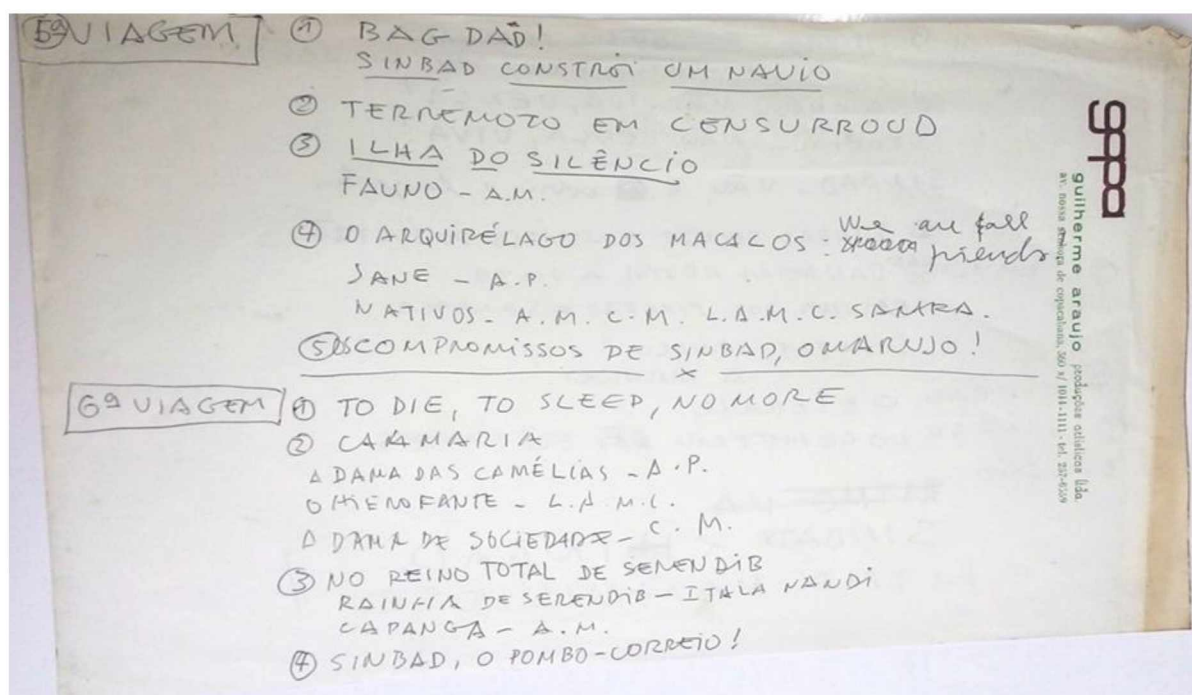 5ª VIAGEM
① BAGDAD!
SINBAD CONSTRÓI UM NAVIO
② TERREMOTO EM CENSURROUD
③ ILHA DO SILÊNCIO
FAUNO - A.M.
④ O ARQUIPÉLAGO DOS MACACOS: We are all friends
JANE - A.P.
NATIVOS - A.M. C.M. L.A.M.C. SAMARA.
⑤ OS COMPROMISSOS DE SINBAD, O MARUJO!
6ª VIAGEM
① TO DIE, TO SLEEP, NO MORE
② CAAMARIA
A DAMA DAS CAMÉLIAS - A.P.
O HIEROFANTE - L.A.M.C.
A DAMA DE SOCIEDADE - C.M.
③ NO REINO TOTAL DE SERENDIB
RAINHA DE SERENDIB - ITALA NANDI
CAPANGA - A.M.
④ SINBAD, O POMBO-CORREIO!
gapa
guilherme araujo produções artísticas ltda.
av. nossa senhora de copacabana, 360 s/ 1011-1111 - tel.